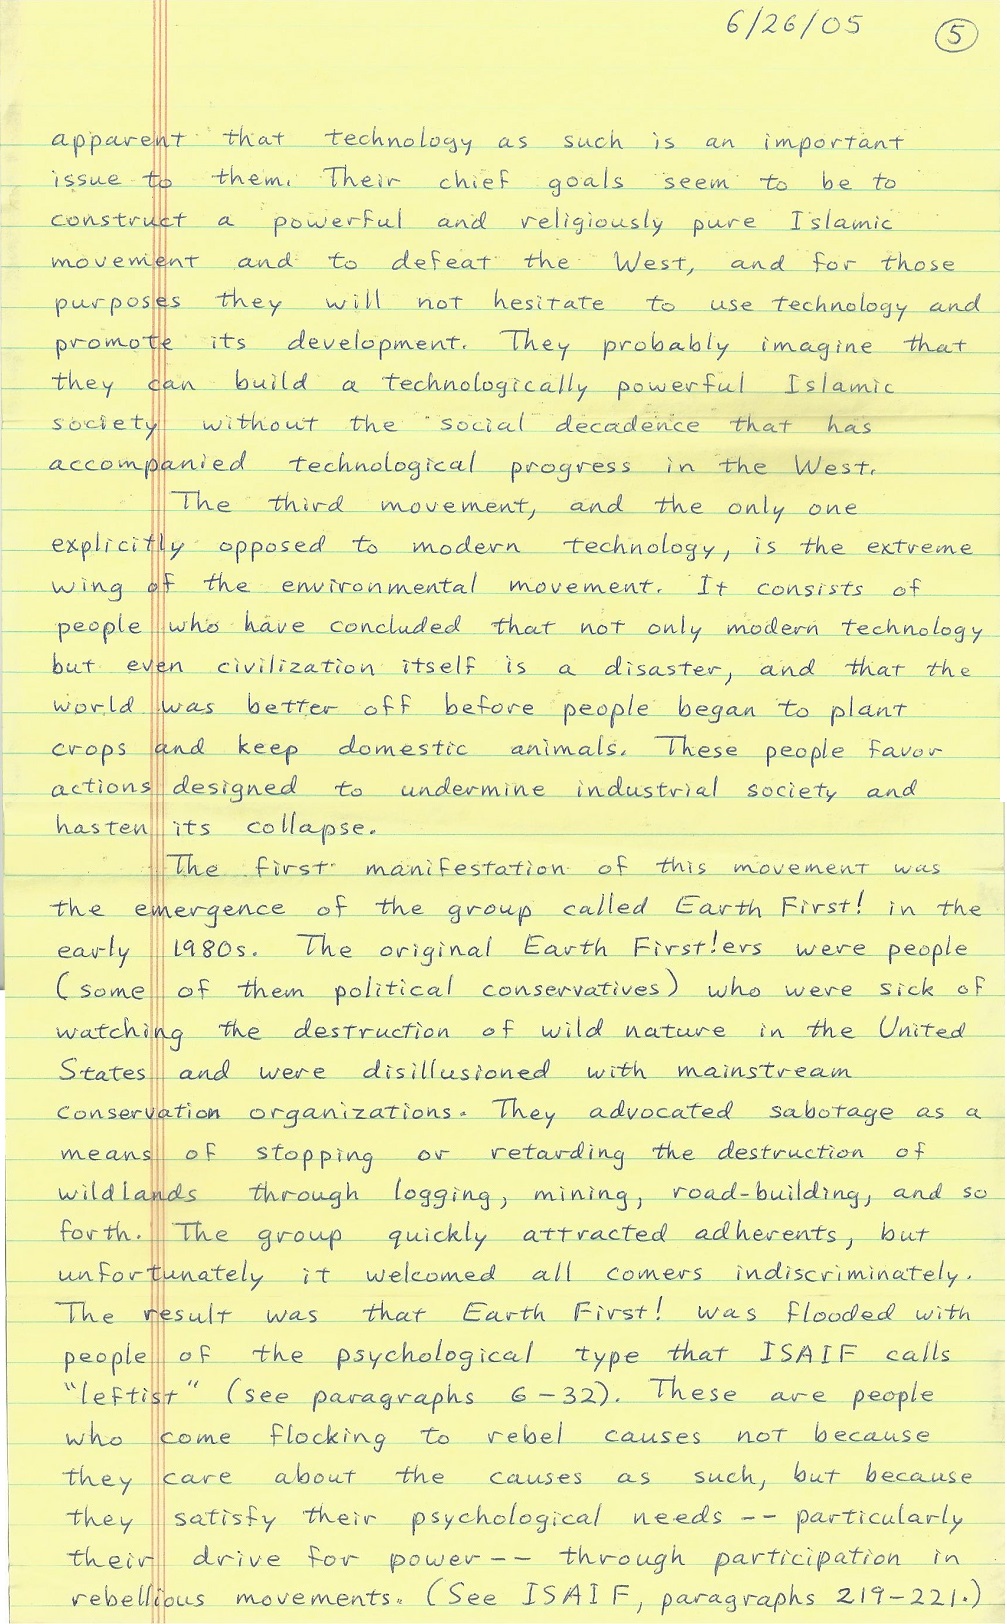 6/26/05 5
apparent that technology as such is an important
issue to them. Their chief goals seem to be to
construct a powerful and religiously pure Islamic
movement and to defeat the West, and for those
purposes they will not hesitate to use technology and
promote its development. They probably imagine that
they can build a technologically powerful Islamic
society without the social decadence that has
accompanied technological progress in the West.
The third movement, and the only one
explicitly opposed to modern technology, is the extreme
wing of the environmental movement. It consists of
people who have concluded that not only modern technology
but even civilization itself is a disaster, and that the
world was better off before people began to plant
crops and keep domestic animals. These people favor
actions designed to undermine industrial society and
hasten its collapse.
The first manifestation of this movement was
the emergence of the group called Earth First! in the
early 1980s. The original Earth First!ers were people
(some of them political conservatives) who were sick of
watching the destruction of wild nature in the United
States and were disillusioned with mainstream
conservation organizations. They advocated sabotage as a
means of stopping or retarding the destruction of
wildlands through logging, mining, road-building, and so
forth. The group quickly attracted adherents, but
unfortunately it welcomed all comers indiscriminately.
The result was that Earth First! was flooded with
people of the psychological type that ISAIF calls
"leftist" (see paragraphs 6-32). These are people
who come flocking to rebel causes not because
they care about the causes as such, but because
they satisfy their psychological needs -- particularly
their drive for power -- through participation in
rebellious movements. (See ISAIF, paragraphs 219-221.)